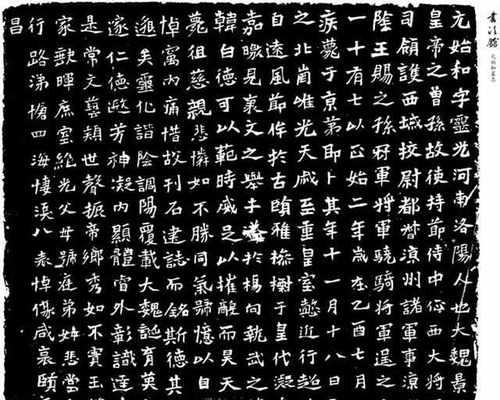 元始和字靈光河南洛陽人也大魏景
皇帝之曾孫故使持節侍中征西大將
司領護西域校尉都督涼州諸軍事涼
陸王賜之孫冠軍將軍驍騎將軍暹之
一十有七以正始二年歲在乙酉七月
疾薨于京第即卜其年十一月十八日
之北崗唯光天戚至重皇室懿近行超
自遠風節侔於古頤雅操櫛于皇代凝
嘉暾見文之舉於楊向執武之
韓白德可以範時威足以摧醜而昊天
薨徂慈親悲憐如不勝同氣號憶以自
悼富內痛惜故刊石建誌而銘斯德其
遙矣靈化諧陰調陽覆載大魏誕育英
家仁德遐芳神凝內顯體睿外彰識達
是常文藝類世聲振帝鄉秀如不實玉
家歇暉庶室絕光父母號弟姊悲
行路涕四海悽淚八表悼傷咸哀頤
昌